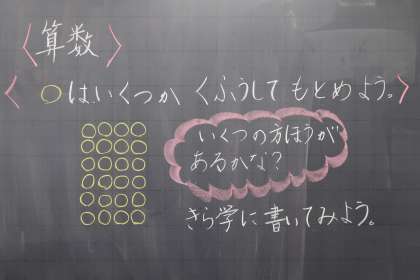 〈算数〉
〈○はいくつか くふうして もとめよう。〉
いくつの方ほうが
あるかな？
きら学に書いてみよう。